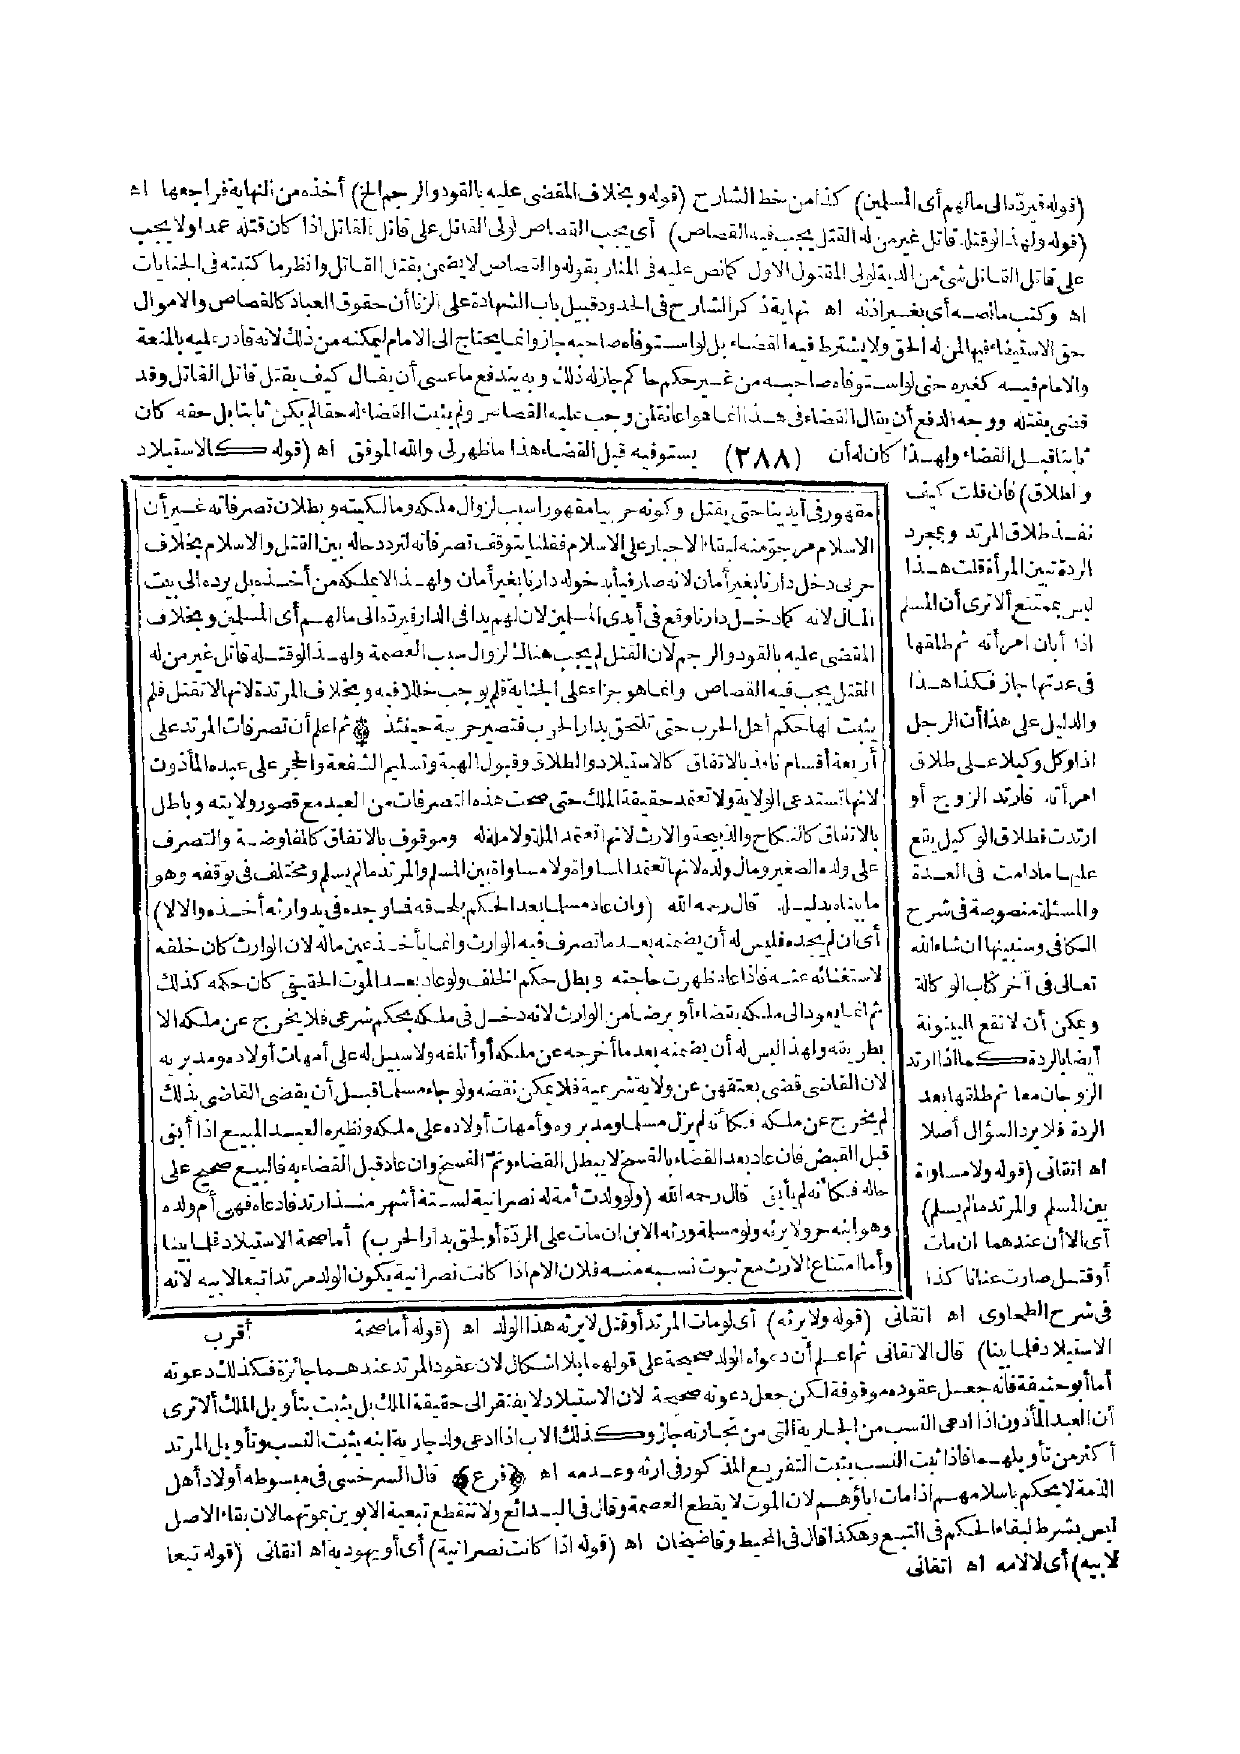 (قوله فيرده الى مالهم أى المسلمين) كذا من خط الشارح (قوله وبخلاف المقضى عليه بالقود والرجم الخ) أخذه من النهاية فراجعها اه
(قوله ولهذا لو قتله قاتل غير من له القتل يجب فيه القصاص) أى يجب القصاص لولى القاتل على قاتل القاتل اذا كان قتله عمدا ولا يجب
على قاتل القاتل شئ من الدية لولى المقتول الاول كما نص عليه فى المنار بقوله والقصاص لا يضمن بقتل القاتل وانظر ما كتبته فى الجنايات
اه وكتب ما نصه أى بغير اذنه اه نهاية ذكر الشارح فى الحدود قبيل باب الشهادة على الزنا أن حقوق العباد كالقصاص والاموال
حق الاستيفاء فيها لمن له الحق ولا يشترط فيه القضاء بل لو استوفاه صاحبه جاز وانما يحتاج الى الامام ليمكنه من ذلك لانه قادر عليه بالمنعة
والامام فيه كغيره حتى لو استوفاه صاحبه من غير حكم حاكم جاز له ذلك وبه يندفع ما عسى أن يقال كيف يقتل قاتل القاتل وقد
قضى بقتله ووجه الدفع أن يقال القضاء فى هذا انما هو اعانة لمن وجب عليه القصاص ولم يثبت القضاء له حقا لم يكن ثابتا بل حقه كان
ثابتا قبل القضاء ولهذا كان له أن (٢٨٨) يستوفيه قبل القضاء هذا ما ظهر لى والله الموفق اه (قوله كالاستيلاد
والطلاق) فان قلت كيف
نفذ طلاق المرتد وبمجرد
الردة تبين المرأة قلت هذا
ليس بممتنع ألا ترى أن المسلم
اذا أبان امرأته ثم طلقها
فى عدتها جاز فكذا هذا
والدليل على هذا أن الرجل
اذا وكل وكيلا على طلاق
امرأته فارتد الزوج أو
ارتدت فطلاق الوكيل يقع
عليها ما دامت فى العدة
والمسئلة منصوصة فى شرح
الكافى وسنبينها ان شاء الله
تعالى فى آخر كتاب الوكالة
ويمكن أن لا تقع البينونة
أيضا بالردة كما اذا ارتد
الزوجان معا ثم طلقها بعد
الردة فلا يرد السؤال أصلا
اه اتقانى (قوله ولا مساواة
بين المسلم والمرتد ما لم يسلم)
أى الا أن عندهما ان مات
أو قتل صارت عنانا كذا
مقهور فى أيدينا حتى يقتل وكونه حربيا مقهورا سبب لزوال ملكه ومالكيته وبطلان تصرفاته غير أن
الاسلام مرجو منه لبقاء الاجبار على الاسلام فقلنا بتوقف تصرفاته لتردد حاله بين القتل والاسلام بخلاف
حربى دخل دارنا بغير أمان لانه صار فيأ بدخوله دارنا بغير أمان ولهذا لا يملكه من أخذه بل يرده الى بيت
المال لانه كما دخل دارنا وقع فى أيدى المسلمين لان لهم يدا فى الدار فيرده الى مالهم أى المسلمين وبخلاف
المقضى عليه بالقود والرجم لان القتل لم يجب هناك لزوال سبب العصمة ولهذا لو قتله قاتل غير من له
القتل يجب فيه القصاص وانما هو جزاء على الجناية فلم يوجب خللا فيه وبخلاف المرتدة لانها لا تقتل فلم
يثبت لها حكم أهل الحرب حتى تلتحق بدار الحرب فتصير حربية حينئذ ۞ ثم اعلم أن تصرفات المرتد على
أربعة أقسام نافذ بالاتفاق كالاستيلاد والطلاق وقبول الهبة وتسليم الشفعة والحجر على عبده المأذون
لانها تستدعى الولاية ولا تعتمد حقيقة الملك حتى صحت هذه التصرفات من العبد مع قصور ولايته وباطل
بالاتفاق كالنكاح والذبيحة والارث لانها تعتمد الملة ولا ملة له وموقوف بالاتفاق كالمفاوضة والتصرف
على ولده الصغير ومال ولده لانها تعتمد المساواة ولا مساواة بين المسلم والمرتد ما لم يسلم ومختلف فى توقفه وهو
ما بيناه بدليله قال رحمه الله (وان عاد مسلما بعد الحكم بلحاقه فما وجده فى يد وارثه أخذه والا لا)
أى ان لم يجده فليس له أن يضمنه بعد ما تصرف فيه الوارث وانما يأخذ عين ماله لان الوارث كان خلفه
لاستغنائه عنه فاذا عاد ظهرت حاجته وبطل حكم الخلف ولو عاد بعد الموت الحقيقى كان حكمه كذلك
ثم انما يعود الى ملكه بقضاء أو برضا من الوارث لانه دخل فى ملكه بحكم شرعى فلا يخرج عن ملكه الا
بطريقه ولهذا ليس له أن يضمنه بعد ما أخرجه عن ملكه أو أتلفه ولا سبيل له على أمهات أولاده ومدبريه
لان القاضى قضى بعتقهن عن ولاية شرعية فلا يمكن نقضه ولو جاء مسلما قبل أن يقضى القاضى بذلك
لم يخرج عن ملكه فكأنه لم يزل مسلما ومدبروه وأمهات أولاده على ملكه ونظيره العبد المبيع اذا أبق
قبل القبض فان عاد بعد القضاء بالفسخ لا يبطل القضاء وتم الفسخ وان عاد قبل القضاء به فالبيع صحيح على
حاله فكأنه لم يأبق قال رحمه الله (ولو ولدت أمة له نصرانية لستة أشهر منذ ارتد فادعاه فهى أم ولده
وهو ابنه حر ولا يرثه ولو مسلمة ورثه الابن ان مات على الردة أو لحق بدار الحرب) أما صحة الاستيلاد فلما بينا
وأما امتناع الارث مع ثبوت نسبه منه فلان الام اذا كانت نصرانية يكون الولد مرتدا تبعا لابيه لانه
أقرب
فى شرح الطحاوى اه اتقانى (قوله ولا يرثه) أى لو مات المرتد أو قتل لا يرثه هذا الولد اه (قوله أما صحة
الاستيلاد فلما بينا) قال الاتقانى ثم اعلم أن دعواه الولد صحيحة على قولهما بلا اشكال لان عقود المرتد عندهما جائزة فكذلك دعوته
أما أبو حنيفة فانه جعل عقوده موقوفة لكن جعل دعوته صحيحة لان الاستيلاد لا يفتقر الى حقيقة الملك بل يثبت بتأويل الملك ألا ترى
أن العبد المأذون اذا ادعى النسب من الجارية التى من تجارته جاز وكذلك الاب اذا ادعى ولد جارية ابنه يثبت النسب وتأويل المرتد
أكثر من تأويلهما فاذا ثبت النسب يثبت التفريع المذكور فى ارثه وعدمه اه ﴿فرع﴾ قال السرخسى فى مبسوطه أولاد أهل
الذمة لا يحكم باسلامهم اذا مات اباؤهم لان الموت لا يقطع العصمة وقال فى البدائع ولا تنقطع تبعية الابوين بموتهما لان بقاء الاصل
ليس بشرط لبقاء الحكم فى التبع وهكذا قال فى المحيط وقاضيخان اه (قوله اذا كانت نصرانية) أى أو يهودية اه اتقانى (قوله تبعا
لابيه) أى لا لامه اه اتقانى